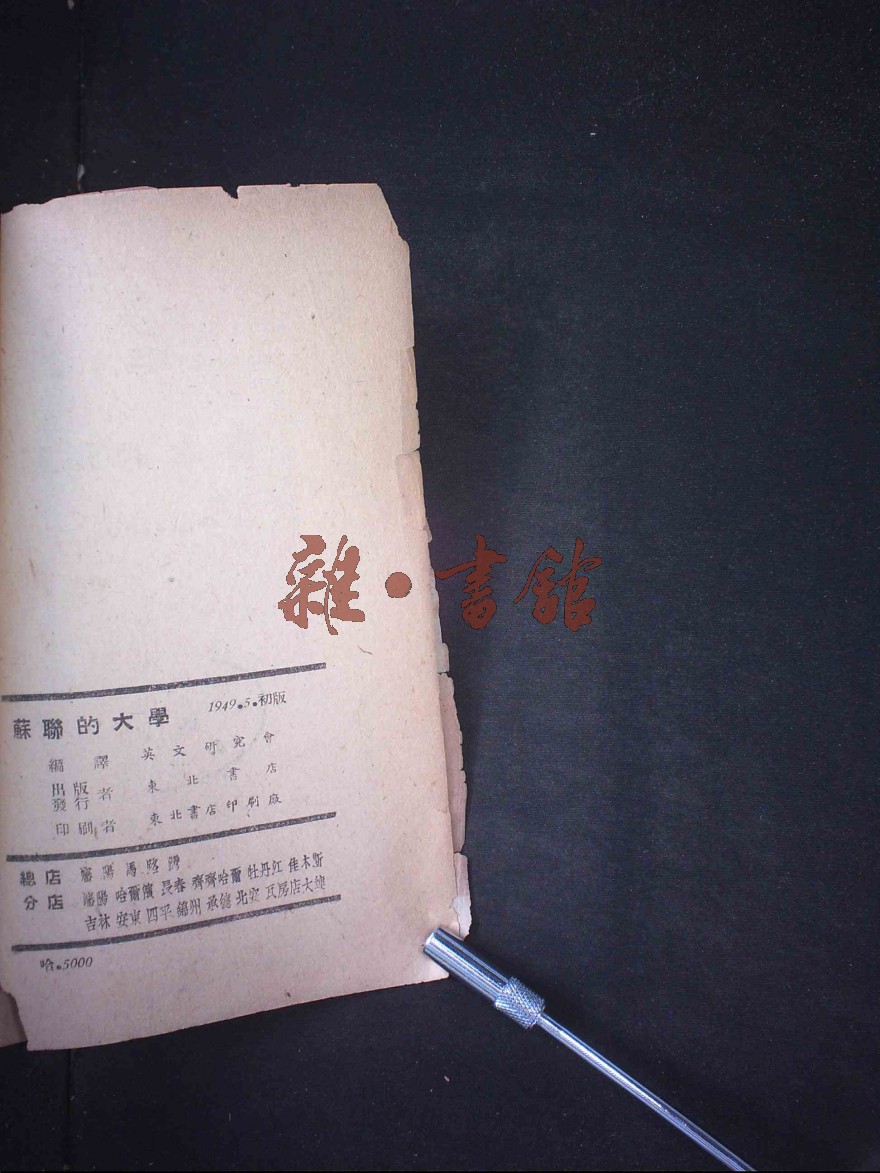 雜•書館
1949.5.初版
蘇聯的大學
編譯 英文研究會
出版
發行者 東北書店
印刷者 東北書店印刷廠
總店 瀋陽馬路灣
分店 瀋陽 哈爾濱 長春 齊齊哈爾 牡丹江 佳木斯
吉林 安東 四平 錦州 承德 北安 瓦房店 大連
哈.5000